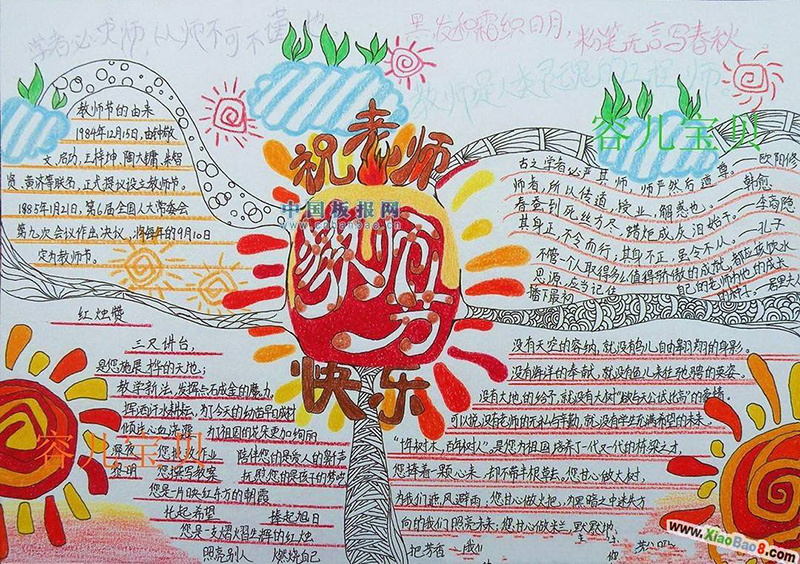 学者必求师,从师不可不谨也
黑发积霜织日月,
粉笔无言写春秋
祝老师
教师节
快乐
中国板报网
容儿宝贝
教师节的由来
1984年12月15日,由钟敬
文、启功、王梓坤、陶大镛、朱智
贤、黄济等联名,正式提议设立教师节。
1985年1月21日,第6届全国人大常委会
第九次会议作出决议,将每年的9月10日
定为教师节。
古之学者必严其师,师严然后道尊。 欧阳修
师者,所以传道,授业,解惑也。 韩愈
春蚕到死丝方尽,蜡炬成灰泪始干。 李商隐
其身正,不令而行;其身不正,虽令不从。 孔子
不管一个人取得多么值得骄傲的成就,都应该饮水
思源,应当记住
自己的老师为他的成长
播下最初
的种子。 居里夫人
红烛赞
三尺讲台,
是您施展 的天地;
教学新法,发挥点石成金的魔力,
挥洒汗水耕耘,为了今天的幼苗早日成材
倾注心血浇灌 为了祖国的花朵更加绚丽
深夜 您批改作业 陪伴您的是爱人的鼾声
黎明 您撰写教案 抚慰您的是孩子的梦呓
您是一片映红东方的朝霞
托起希望 捧起旭日
您是一支熠熠生辉的红烛
照亮别人 燃烧自己
没有天空的容纳,就没有鸟儿自由翱翔的身影。
没有海洋的奉献,就没有鱼儿来往驰骋的英姿。
没有大地的给予,就没有大树“欲与天公试比高”的豪情。
可以说,没有老师的无私与辛勤,就没有学生充满希望的未来。
“十年树木,百年树人”,是您为祖国培养了一代又一代的桥梁之才,
您捧着一颗心来,却不带半根草去,您甘心做大树,
为我们遮风避雨;您甘心做火把,为黑暗之中迷失方
向的我们照亮方来;您甘心做米兰,默默地,
把芳香
容儿宝贝
www.XiaoBao8.com